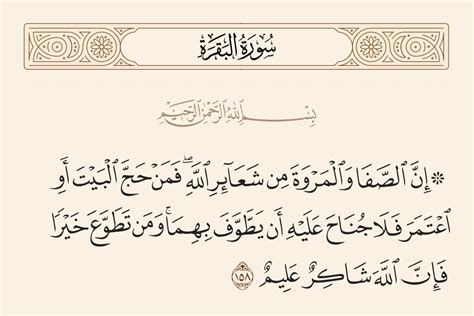 سُورَةُ البَقَرَةِ
بِسْمِ اللَّهِ الرَّحْمَٰنِ الرَّحِيمِ
۞ إِنَّ الصَّفَا وَالْمَرْوَةَ مِن شَعَائِرِ اللَّهِ ۖ فَمَنْ حَجَّ الْبَيْتَ أَوِ
اعْتَمَرَ فَلَا جُنَاحَ عَلَيْهِ أَن يَطَّوَّفَ بِهِمَا ۚ وَمَن تَطَوَّعَ خَيْرًا
فَإِنَّ اللَّهَ شَاكِرٌ عَلِيمٌ ١٥٨